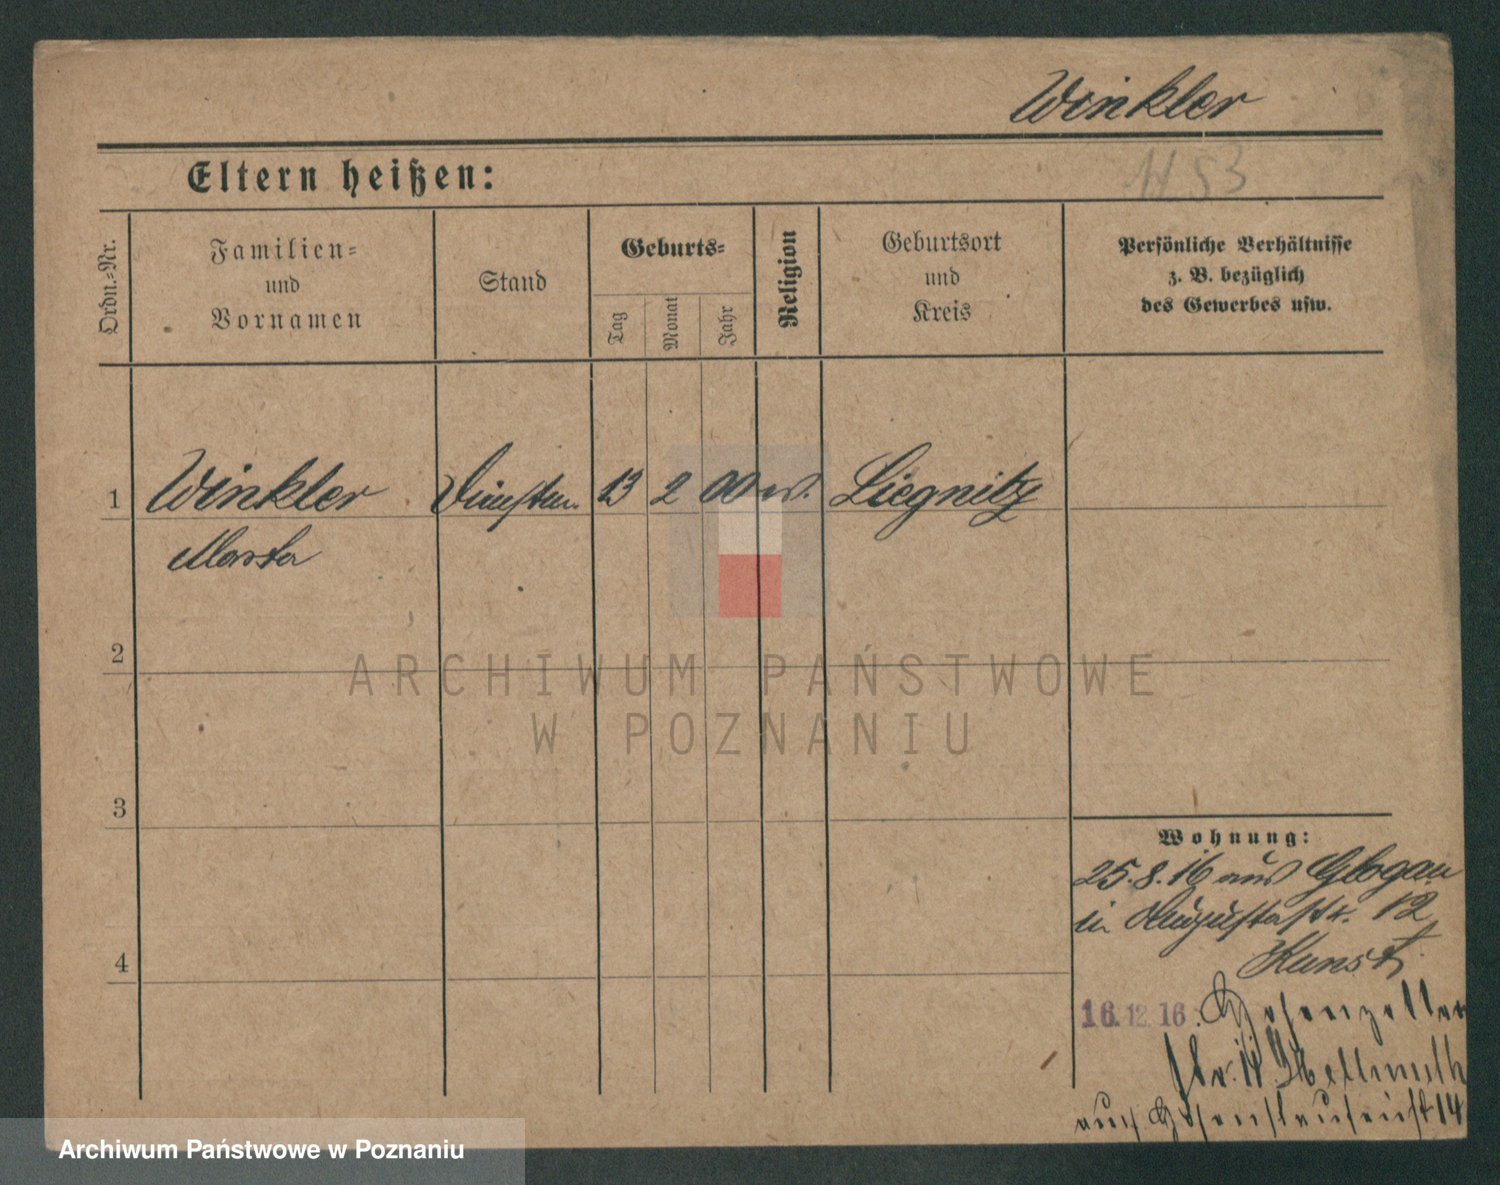 Winkler
1453
Eltern heißen:
Ordn.-Nr.
Familien-
und
Vornamen
Stand
Geburts-
Tag
Monat
Jahr
Religion
Geburtsort
und
Kreis
Persönliche Verhältnisse
z. B. bezüglich
des Gewerbes usw.
1 Winkler Dienstm. 13 2 00 ev. Liegnitz
Marta
2
3
4
Wohnung:
25.8.16 aus Glogau
in Augustastr. 12
Kunst
16.12.16. Hohenzoller
str. Hellmuth
14
ARCHIWUM PAŃSTWOWE
W POZNANIU
Archiwum Państwowe w Poznaniu